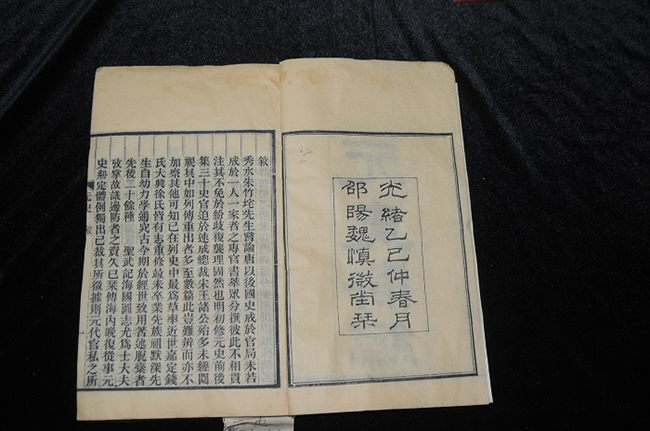 光緒乙巳仲春月
邵陽魏慎微堂栞
敘
秀水朱竹垞先生嘗論唐以後國史成於官局未若
成於一人一家者之專官書萃眾分撰彼此不相貫
注其不免於紛歧複襲理固然也明初修元史前後
集三十史官迫於速成總裁宋王諸公殆多未經閱
覩其中如列傳重出者多至數篇此豈難辨而亦不
加察其他可知已在列史中最為草率近世嘉定錢
氏大興徐氏皆有志重修竝未卒業先族祖默深先
生自幼力學通究古今期於經世致用著述脫稾者
先後三十餘種 聖武記海國圖志尤為士大夫
攷掌故議邊防者之資久已槧傳海內晚復從事元
史剙定體例獨出己裁其所徵據則元代官私之所